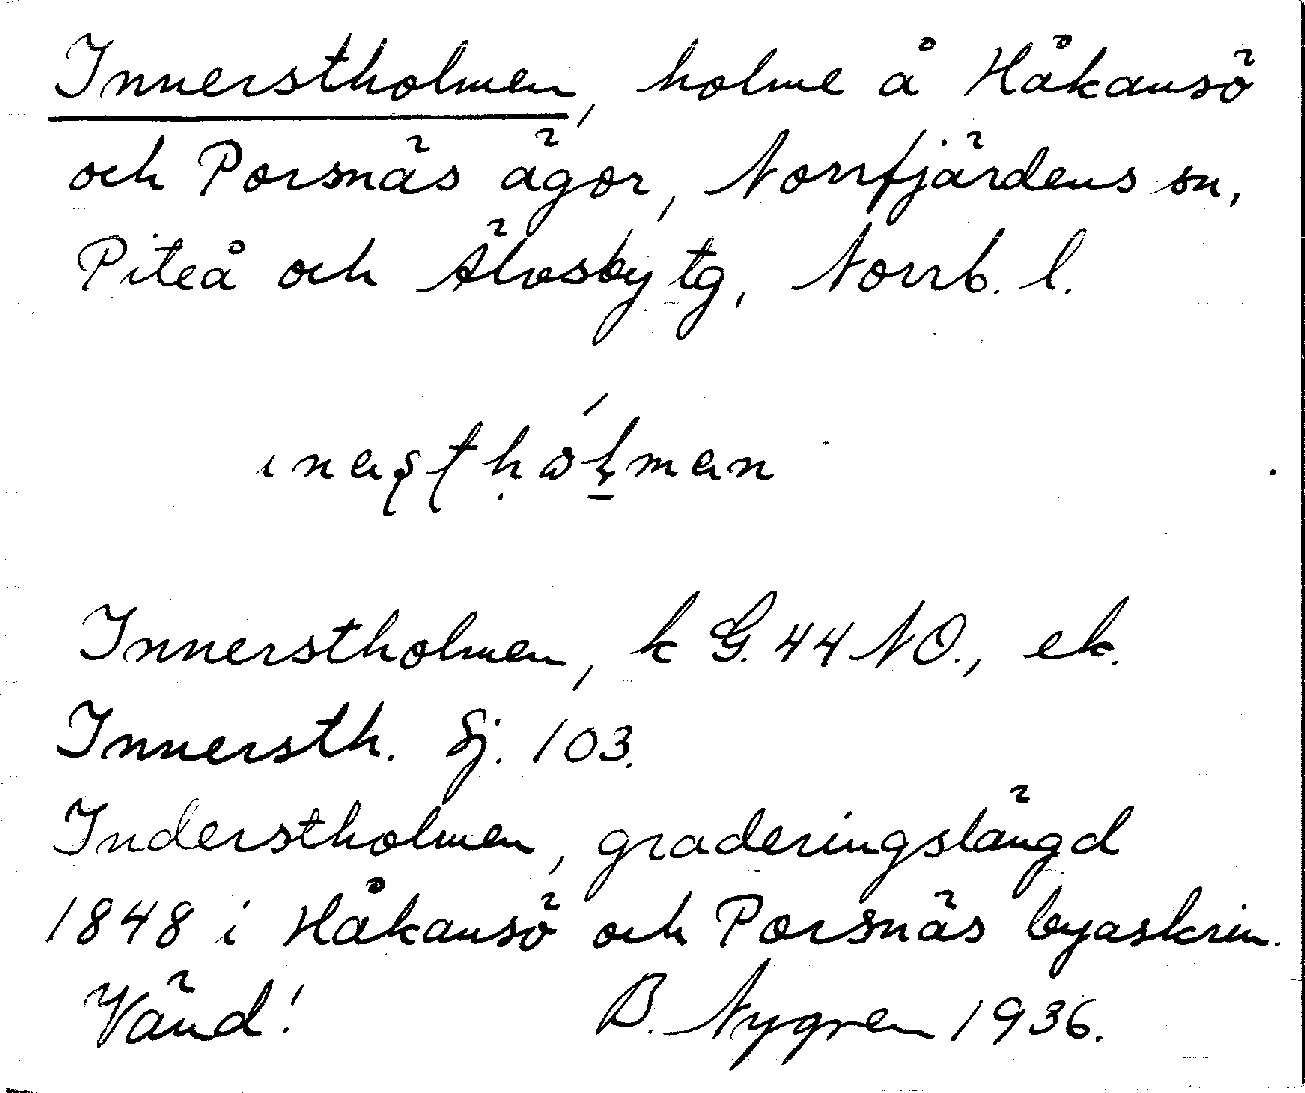 Innerstholmen, holme å Håkansö
och Porsnäs ägor, Norrfjärdens sn,
Piteå och Älvsby tg, Norrb. l.
Innerstholmen, k G. 44 NO., ek.
Innersth. Sj. 103.
Inderstholmen, graderingslängd
1848 i Håkansö och Porsnäs byaskrin.
Vänd! B. Nygren 1936.